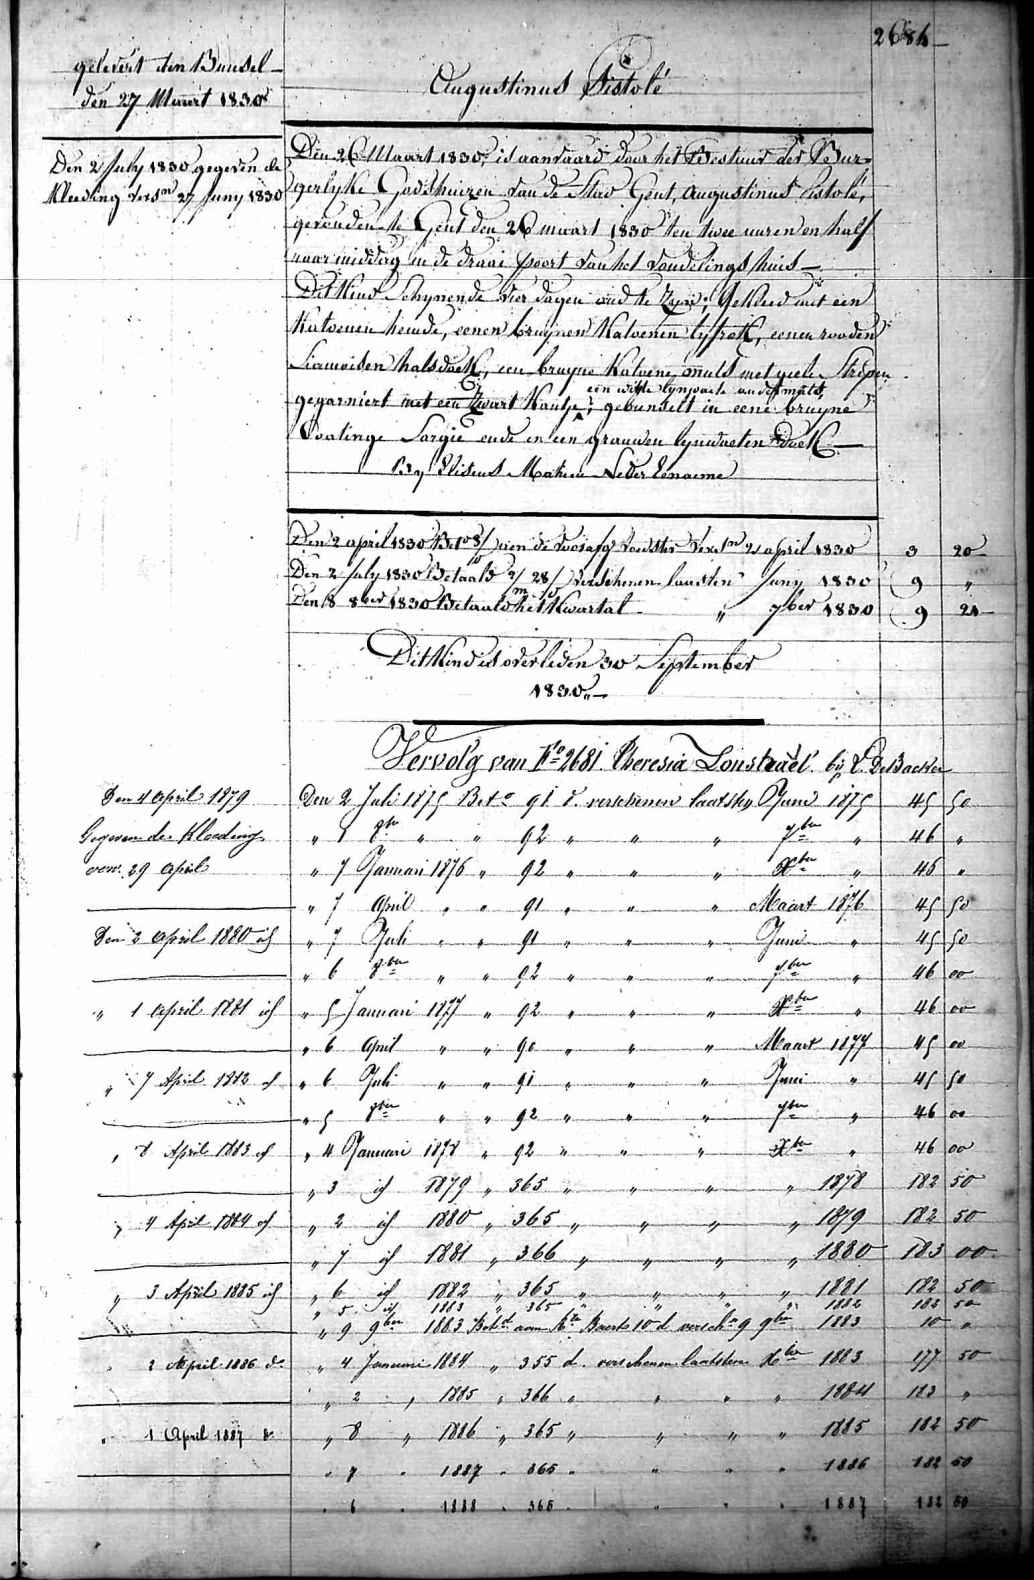 2686
gelevert den Bunsel
den 27 Maart 1830
Augustinus Pistolé
Den 2 July 1830 gegeven de
Kleeding vers.m 27 Juny 1830
Den 26 Maart 1830, is aanvaard door het Bestuur der Bur-
gerlyke Godshuizen van de Stad Gent, Augustinus Pistolé,
gevonden te Gent den 26 maart 1830 ten twee uuren en half
naarmiddag in de draai poort van het vondelings huis
Dit Kind Schynende vier dagen oud te Zyn; Gekleed met een
Katoenen hemde, eenen bruynen Katoenen lyfrok, eenen rooden
Siamoisen halsdoek, een bruyne Katoene muts met geele Strepen
een witte lynwaete ondermuts,
gegarniert met een Zwart Kantje, gebunselt in eene bruyne
Voatinge Sargie ende in een grauwen lynwaeten doek
By Eliseus Mahieu Neder Eenaeme
Den 2 april 1830 Bet.o 8/ aen de voorafg. voedster vers.m 2 april 1830 3 20
Den 2 July 1830 Betaald 2/ 28/ verschenen laasten Juny 1830 9 "
Den 8 8ber 1830 Betaald het Kwartal " 7ber 1830 9 20
Dit Kind is overleden 30 September
1830
Vervolg van F.o 2681. Theresia Lonstraël. bij L. De Backer
Den 4 April 1879
Gegeven de Kleeding
verv. 29 April
Den 2 April 1880 id
" 1 April 1881 id
" 7 April 1882 id
" 8 April 1883 id
" 4 April 1884 id
" 3 April 1885 id
2 April 1886 d.o
1 April 1887 d.o
Den 2 Juli 1875 Bet.o 91 d. verschenen laatsten Juni 1875 45 50
" 1 8ber " " 92 " " " 7ber " 46 "
" 7 Januari 1876 " 92 " " " Xber " 46 "
" 7 April " " 91 " " " Maart 1876 45 50
" 7 Juli " " 91 " " " Juni " 45 50
" 6 8ber " " 92 " " " 7ber " 46 00
" 5 Januari 1877 " 92 " " " Xber " 46 00
" 6 April " " 90 " " " Maart 1877 45 00
" 6 Juli " " 91 " " " Juni " 45 50
" 5 8ber " " 92 " " " 7ber " 46 00
" 4 Januari 1878 " 92 " " " Xber " 46 00
" 3 id 1879 " 365 " " " " 1878 182 50
" 2 id 1880 " 365 " " " " 1879 182 50
" 7 id 1881 " 366 " " " " 1880 183 00
" 6 id 1882 " 365 " " " " 1881 182 50
" 5 id 1883 " 365 " " " " 1882 182 50
" 9 9ber 1883 Bet.d aan Baerts 10 d versch.n 9 9ber 1883 10 "
" 4 Januari 1884 " 355 d. verschenen laatsten Xber 1883 177 50
" 2 " 1885 " 366 " " " " 1884 183 "
" 8 " 1886 " 365 " " " " 1885 182 50
" 7 " 1887 " 365 " " " " 1886 182 50
" 6 " 1888 " 365 " " " " 1887 182 50